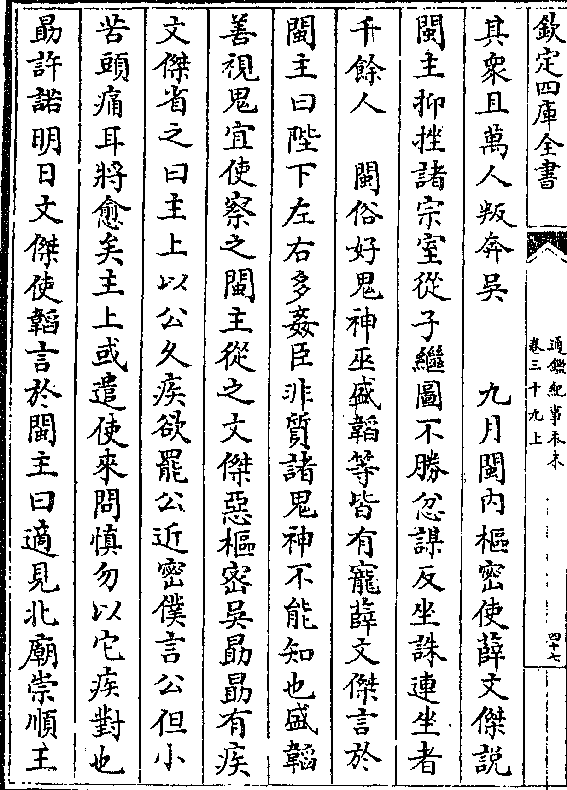 欽定四庫全書
通鑑紀事本末
卷三十九上
四十七
其衆且萬人叛奔吳　九月閩內樞密使薛文傑說
閩主抑挫諸宗室從子繼圖不勝忿謀反坐誅連坐者
千餘人　閩俗好鬼神巫盛韜等皆有寵薛文傑言於
閩主曰陛下左右多姦臣非質諸鬼神不能知也盛韜
善視鬼宜使察之閩主從之文傑惡樞密吳勗勗有疾
文傑省之曰主上以公久疾欲罷公近密僕言公但小
苦頭痛耳將愈矣主上或遣使來問慎勿以它疾對也
勗許諾明日文傑使韜言於閩主曰適見北廟崇順王